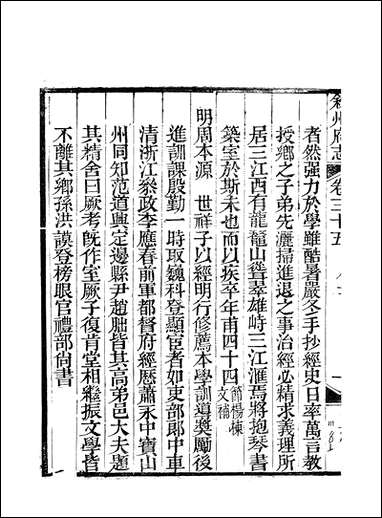 敘州府志 卷三十五
者然强力於學雖酷暑嚴冬手抄經史日率萬言教
授鄉之子弟先灑掃進退之事治經必精求義理所
居三江西有龍龍山聳翠雄峙三江滙焉將抱琴書
築室於斯未也而以疾卒年甫四十四 節楊棟文稿
明周本源 世祥子以經明行修薦本學訓導奬勵後
進訓課殷勤一時取巍科登顯宦者如吏部郎中車
清浙江叅政李應春前軍都督府經歷蕭永中寶山
州同知范道興定邊縣尹趙朏皆其高弟邑大夫題
其精舍曰厥考旣作室厥子復肯堂相繼振文學皆
不離其鄉孫洪謨登榜眼官禮部尙書